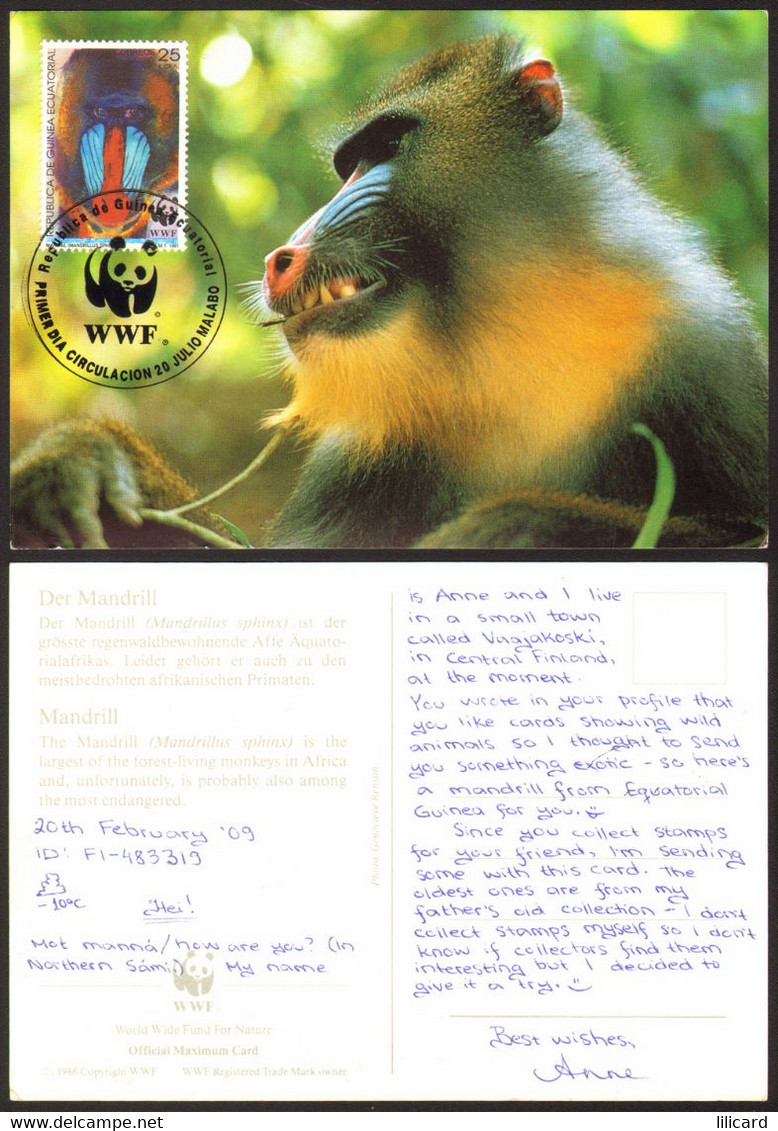 CORREOS 25
REPUBLICA DE GUINEA ECUATORIAL
WWF
Republica de Guinea Ecuatorial
WWF
PRIMER DIA CIRCULACION 20 JULIO MALABO
Der Mandrill
Der Mandrill (Mandrillus sphinx) ist der
grösste regenwaldbewohnende Affe Äquato-
rialafrikas. Leider gehört er auch zu den
meistbedrohten afrikanischen Primaten.
Mandrill
The Mandrill (Mandrillus sphinx) is the
largest of the forest-living monkeys in Africa
and, unfortunately, is probably also among
the most endangered.
20th February '09
ID: FI-483319
-10°C
Hei!
Mot manná/how are you? (In
Northern Sámi.) My name
WWF
World Wide Fund For Nature
Official Maximum Card
© 1986 Copyright WWF WWF Registered Trade Mark owner
Photo: Geneviève Renson
is Anne and I live
in a small town
called Vaajakoski,
in Central Finland,
at the moment.
You wrote in your profile that
you like cards showing wild
animals so I thought to send
you something exotic - so here's
a mandrill from Equatorial
Guinea for you.
Since you collect stamps
for your friend, I'm sending
some with this card. The
oldest ones are from my
father's old collection - I don't
collect stamps myself so I don't
know if collectors find them
interesting but I decided to
give it a try.
Best wishes,
Anne
lilicard